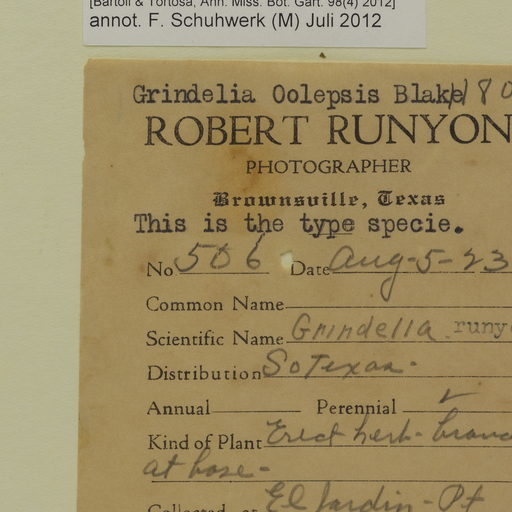 [Bartoli & Tortosa, Ann. Miss. Bot. Gart. 98(4) 2012]
annot. F. Schuhwerk (M) Juli 2012
Grindelia Oolepsis Blake
ROBERT RUNYON
PHOTOGRAPHER
Brownsville, Texas
This is the type specie.
No 506 Date Aug-5-23
Common Name
Scientific Name Grindelia runy
Distribution So Texas.
Annual Perennial ✓
Kind of Plant Erect herb- branc
at base-
Collected at El Jardin - Pt